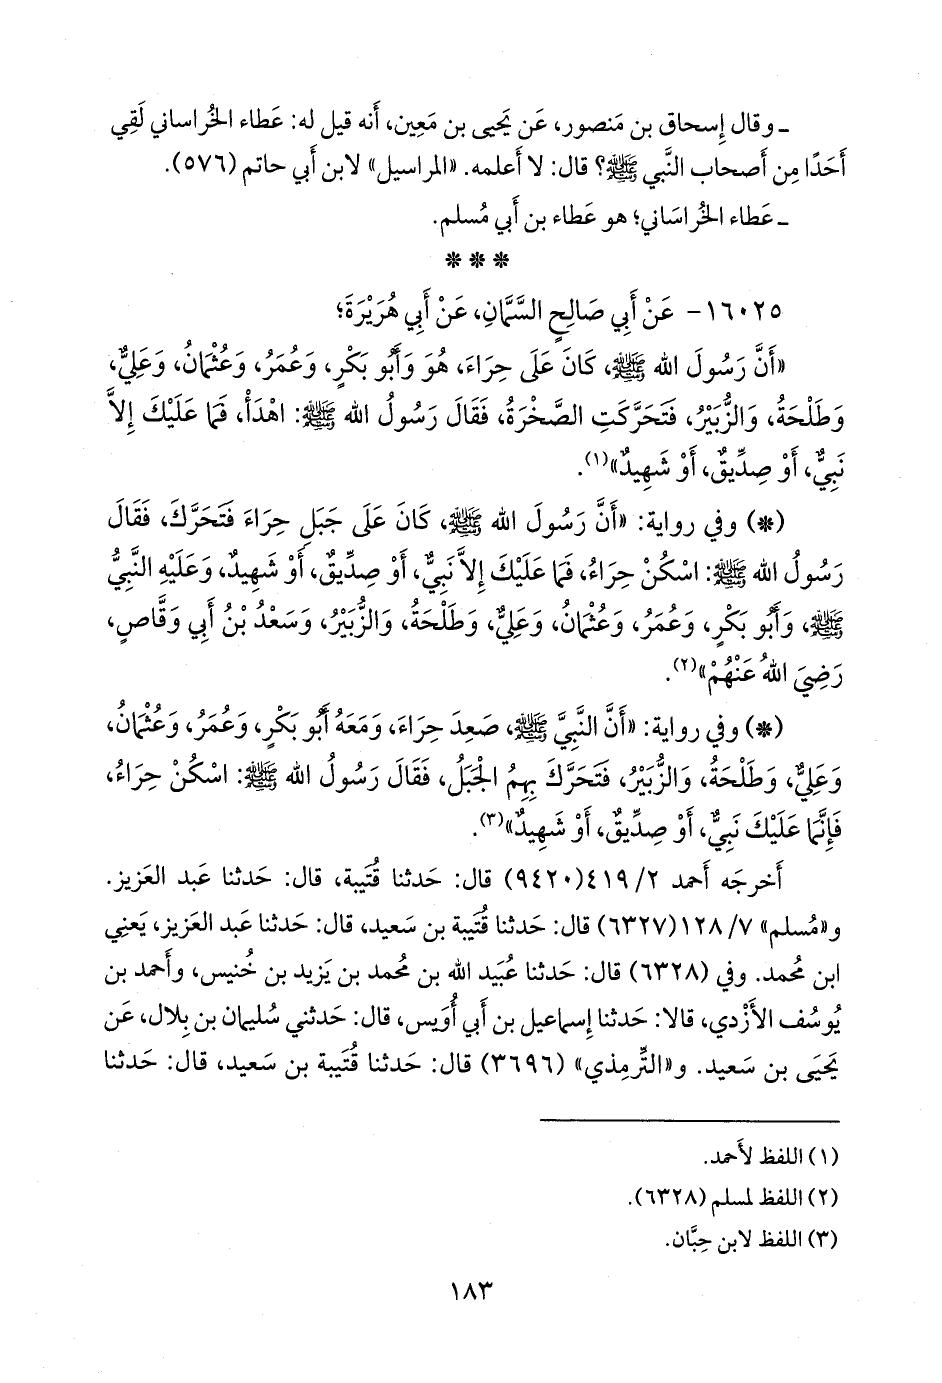 ـ وقال إِسحاق بن مَنصور، عَن يَحيى بن مَعِين، أَنه قيل له: عَطاء الخُراساني لَقِي
أَحَدًا مِن أَصحاب النَّبي ﷺ؟ قال: لا أَعلمه. «المراسيل» لابن أَبي حاتم (٥٧٦).
ـ عَطاء الخُراسَاني؛ هو عَطاء بن أَبي مُسلم.
* * *
١٦٠٢٥- عَنْ أَبِي صَالِحٍ السَّمَّانِ، عَنْ أَبِي هُرَيْرَةَ؛
«أَنَّ رَسُولَ الله ﷺ، كَانَ عَلَى حِرَاءَ، هُوَ وَأَبُو بَكْرٍ، وَعُمَرُ، وَعُثْمَانُ، وَعَلِيٌّ،
وَطَلْحَةُ، وَالزُّبَيْرُ، فَتَحَرَّكَتِ الصَّخْرَةُ، فَقَالَ رَسُولُ الله ﷺ: اهْدَأْ، فَمَا عَلَيْكَ إِلاَّ
نَبِيٌّ، أَوْ صِدِّيقٌ، أَوْ شَهِيدٌ»(١).
(*) وفي رواية: «أَنَّ رَسُولَ الله ﷺ، كَانَ عَلَى جَبَلِ حِرَاءَ فَتَحَرَّكَ، فَقَالَ
رَسُولُ الله ﷺ: اسْكُنْ حِرَاءُ، فَمَا عَلَيْكَ إِلاَّ نَبِيٌّ، أَوْ صِدِّيقٌ، أَوْ شَهِيدٌ، وَعَلَيْهِ النَّبِيُّ
ﷺ، وَأَبُو بَكْرٍ، وَعُمَرُ، وَعُثْمَانُ، وَعَلِيٌّ، وَطَلْحَةُ، وَالزُّبَيْرُ، وَسَعْدُ بْنُ أَبِي وَقَّاصٍ،
رَضِيَ اللهُ عَنْهُمْ»(٢).
(*) وفي رواية: «أَنَّ النَّبِيَّ ﷺ، صَعِدَ حِرَاءَ، وَمَعَهُ أَبُو بَكْرٍ، وَعُمَرُ، وَعُثْمَانُ،
وَعَلِيٌّ، وَطَلْحَةُ، وَالزُّبَيْرُ، فَتَحَرَّكَ بِهِمُ الْجَبَلُ، فَقَالَ رَسُولُ الله ﷺ: اسْكُنْ حِرَاءُ،
فَإِنَّمَا عَلَيْكَ نَبِيٌّ، أَوْ صِدِّيقٌ، أَوْ شَهِيدٌ»(٣).
أَخرجَه أَحمد ٢/ ٤١٩(٩٤٢٠) قال: حَدثنا قُتَيبة، قال: حَدثنا عَبد العَزيز.
و«مُسلم» ٧/ ١٢٨(٦٣٢٧) قال: حَدثنا قُتَيبة بن سَعيد، قال: حَدثنا عَبد العَزيز، يَعني
ابن مُحمد. وفي (٦٣٢٨) قال: حَدثنا عُبَيد الله بن مُحمد بن يَزيد بن خُنيس، وأَحمد بن
يُوسُف الأَزْدي، قالا: حَدثنا إِسماعيل بن أَبي أُوَيس، قال: حَدثني سُليمان بن بِلال، عَن
يَحيَى بن سَعيد. و«التِّرمِذي» (٣٦٩٦) قال: حَدثنا قُتَيبة بن سَعيد، قال: حَدثنا
(١) اللفظ لأَحمد.
(٢) اللفظ لمسلم (٦٣٢٨).
(٣) اللفظ لابن حِبَّان.
١٨٣